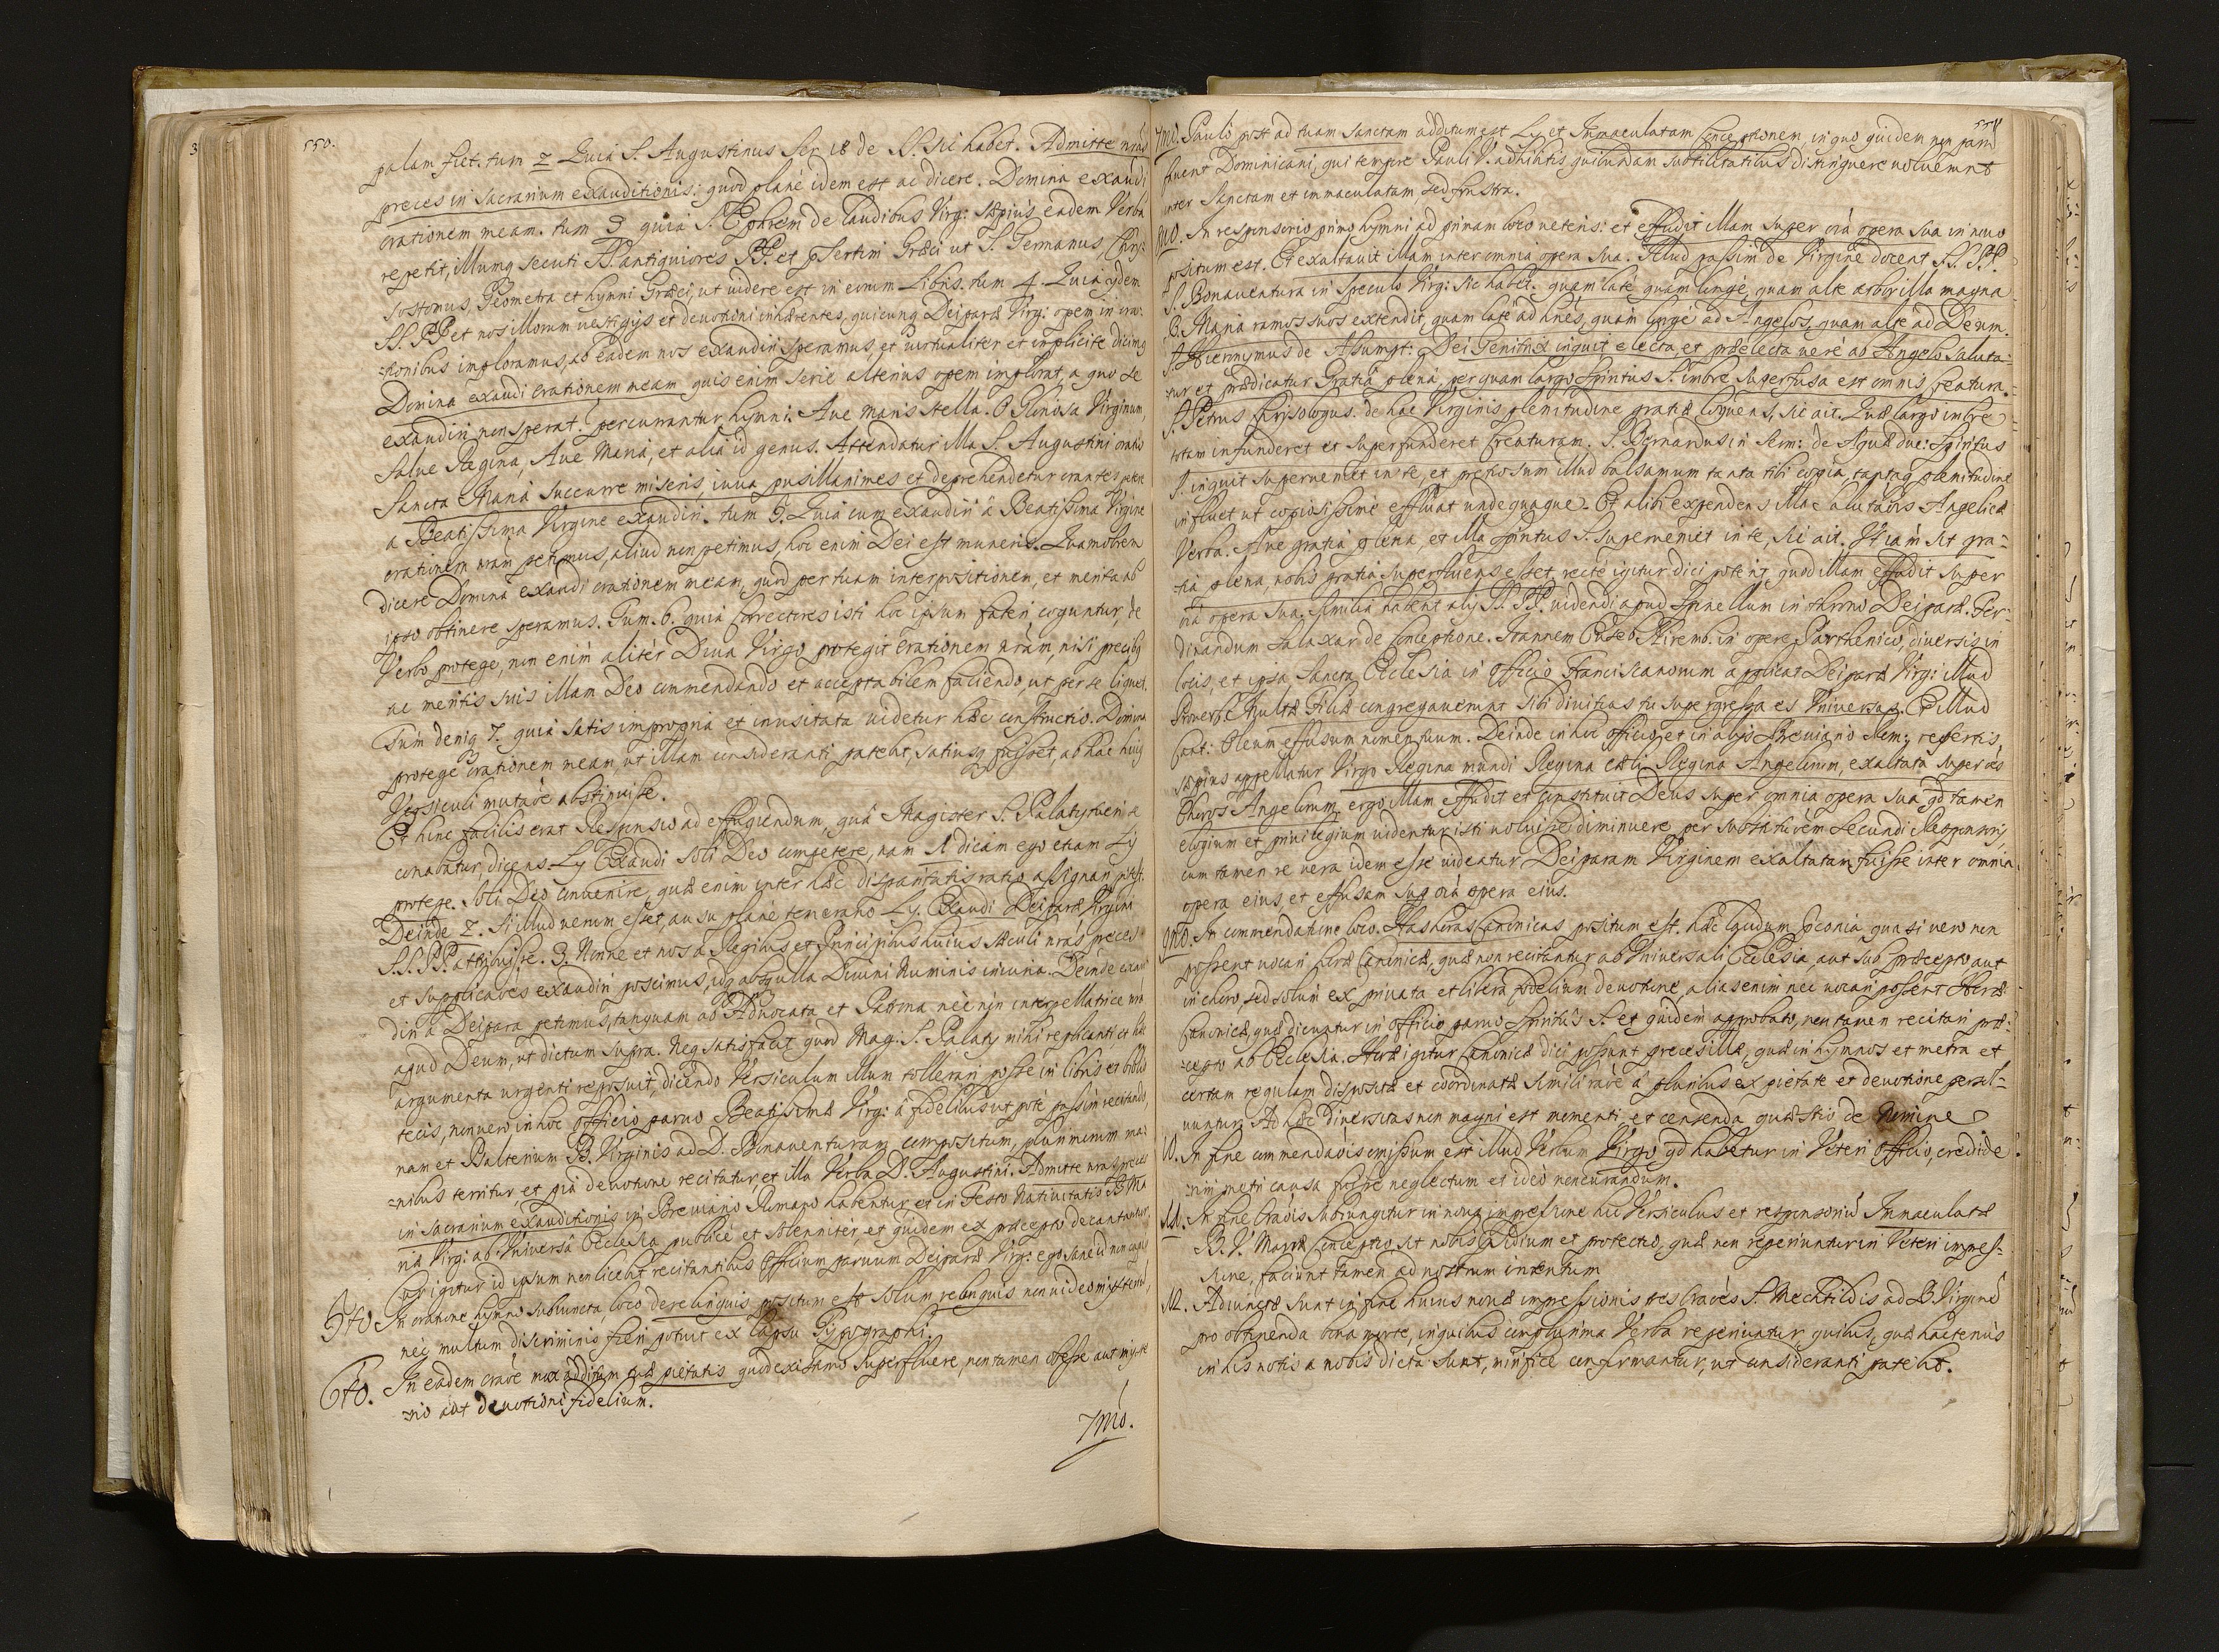 550.
palam fiet. tum 2 Quia S. Augustinus Ser 18 de S.S. sic habet. Admitte nras
preces in sacrarium exauditionis: quod planè idem est ac dicere. Domina exaudi
orationem meam. tum 3 quia S. Ephrem de laudibus Virg: sæpius eadem Verba
repetit, illumq secuti PP. antiquiores PP. et psertim Græci ut S. Germanus, Chry:
sostomus, Geometra et hymni Græci, ut uidere est in eorum Libris. tum 4. Quia ijdem
SS. PP et nos illorum uestigijs et deuotioni inhærentes, quicunq Deiparæ Virg: opem in oro:
=tionibus imploramus, ab eadem nos exaudiri speramus et uirtualiter et implicite dicimq
Domina exaudi orationem meam quis enim seriè alterius opem implorat, a quo se
exaudiri non sperat? percurrantur hymni. Aue maris stella. O Gloriosa Virginum,
Salue Regina, Aue Maria, et alia id genus. Attendatur illa S. Augustini oratio
Sancta Maria succurre miseris, iuua pusillanimes et deprehendetur orantes petere
a Beatissima Virgine exaudiri. tum 5. Quia cum exaudiri à Beatissima Virgine
orationem nram petimus, aliud non petimus, hoc enim Dei est muneris. Quamobrem
dicere Domina exaudi orationem meam, quod per tuam interpositionem, et merita ab
ipso obtinere speramus. Tum. 6. quia Correctores isti hoc ipsum fateri coguntur, de
Verbo protege, non enim alitèr Diua Virgo protegit orationem nràm, nisi precibq
ac meritis suis illam Deo commendando et acceptabilem faciendo, ut per se liquet.
Tùm deniq 7. quia satis impropria et inusitata uidetur hæc constructio. Domina
protege orationem meam, ut illam consideranti patebit, satiusq fuisset, ab hac huiq
Versiculi mutaòe abstinuisse.
Et hinc facilis erat Responsio ad effugiendum, quâ Magister S. Palatij tueri se
conabatur, dicens. Ly Exaudi soli Deo competere, nam 1 dicam ego etiam Ly
protege. soli Deo conuenire, quæ enim inter hæc disparitatis ratio assignari potest.
Deinde 2. Si illud uerum esset, ausu planè temerario Ly. Exaudi Deiparæ Virgini
S.S. PP. attribuisse. 3. Nonne et nos à Regibus et Principibus huius sæculi nràs preces
et supplicaòes exaudiri poscimus, idq absq ulla Diuini Numinis iniuria. Deinde exau
diri à Deipara petimus, tanquam ab Aduocata et Patrina nèc nòn interpellatrice nrà
apud Deum, ut dictum supra. Neq satisfacit quod Mag: S. Palatij mihi replicanti et hæc
argumenta urgenti reposuit, dicendo Versiculum illum tollerari posse in libris et biblio
tecis, non uero in hoc Officio paruo Beatissimæ Virg: à fidelibus ut potè passim recitando,
nam et Psalterium B. Virginis ad D. Bonauenturam compositum, plurimorum ma:
=nibus territur, et pià deuotione recitatur, et illa Verba D. Augustini. Admitte nras preces
in sacrarium exauditionis in Breuiario Romano habentur et in Festo Natiuitatis B. Ma
riæ Virg: ab Vniuersâ Ecclesia publicè et solemnitèr, et quidem ex præcepto decantantur,
cur igitur id ipsum non licebit recitantibus Officium paruum Deiparæ Virg: ego sanè id non capio
5to In oratione hymno subiuncta, loco derelinquis positum est solum relinquis non uideo mysterium,
nèc multum discriminis fieri potuit ex lapsu Typographi.
6to. In eadem oraòe mox additum tuæ pietatis quod existimo superfluere, non tamen obesse aut myste
=rio aut deuotioni fidelium.
7mò.
551
7mò. Paulò post ad tuam sanctam additum est Ly et Immaculatam Conceptionem, in quo quidem non parùm
fauent Dominicani, qui tempore Pauli V. adhibitis quibusdam subtilitatibus distinguere uoluerunt
inter Sanctam et immaculatam, sed frustra.
In responsorio primo hymni ad primam loco ueteris: et effudit illam super oià opera sua in nouo
positum est. Et exaltauit illam inter omnia opera sua. Illud passim de Virgine docent SS. PP.
S. Bonauentura in speculo Virg: sic habet. quam latè quam longè, quam altè arbor illa magna
B. Maria ramos suos extendit, quam latè ad hoiès, quàm longè ad Angelos, quam altè ad Deum.
S. Hieronymus de Assumpt: Dei Genitrix inquit electa, et præelecta uerè ab Angelo saluta:
=tur et prædicatur Gratiâ plena, per quam largo Spiritus S. imbre superfusa est omnis Creatura.
S. Petrus Chrisologus. de hac Virginis plenitudine gratiæ loquens, sic ait. Quæ largo imbre
totam infunderet et superfunderet Creaturam. S. Bernardus in Serm: de Aquæduc: Spiritus
S. inquit superueniet in te, et pretiosum illud balsamum tanta tibi copia, tantaq plenitudine
influet ut copiosissimè effluat undequaque. Et alibi expendens illac salutaòis Angelicæ
Verba. Aue gratiâ plena, et illa Spiritus S. superueniet in te, sic ait. Vt iàm sit gra:
tiâ plena, nobis gratiâ superfluens esset, rectè igitur dici poterit quod illam effudit super
oià opera sua. Similia habent alij SS. PP. uidendi apud Spinellum in throno Deiparæ. Fer:
dinandum Salazar de Conceptione. Joannem Euseb. Nieremb. in opere Parthenico, diuersis in
locis, et ipsa Sancta Ecclesia in Officio Franciscanorum applicat Deiparæ Virg: illud
Prouerb: Multæ Filiæ congregauerunt sibi diuitias tu supergressa es Vniuersas. Et illud
Cant: Oleum effusum nomen tuum. Deinde in hoc officio, et in alijs Breuiario Rom: repertis,
sæpius appellatur Virgo Regina mundi Regina cæli, Regina Angelorum, exaltata super oès
Choros Angelorum, ergo illam effudit et constituit Deus super omnia opera sua qd tamen
elogium et priuilegium uidentur isti uoluisse diminuere per substituòem secundi Responsorij,
cum tamen re uera idem esse uideatur Deiparam Virginem exaltatam fuisse inter omnia
opera eius, et effusam sup oià opera eius.
In commendatione loco. Has horas Canonicas positum est. hæc laudum præconia, quasi uero non
possent uocari horæ Canonicæ, quæ non recitantur ab Vniuersali Ecclesia, aut sub præcepto aut
in choro, sed solùm ex priuata et libera fidelium deuotione, alias enim nec uocari possent Horæ
Canonicæ, quæ dicuntur in officio paruo Spiritus S. et quidem approbato, non tamen recitari præ:
=cepto ab Ecclesia. Horæ igitur Canonicæ dici possunt preces illæ, quæ in hymnos et metra et
certam regulam dispositæ et coordinatæ simili raòe à pluribus ex pietate et deuotione persol=
uuntur. Ad hæc diuersitas non magni est momenti, et censenda quæstio de Nomine
10. In fine commendaòis omissum est illud Verbum Virgo qd habetur in Veteri Officio, credide
=rim metri causa fuisse neglectum et ideò non curandum.
11. In fine Oraòis subiungitur in noua impressione hic Versiculus et responsoriù Immaculatæ
B. V. Mariæ Conceptio sit nobis præsidium et protectio, quæ non reperiuntur in Veteri impres=
sione, faciunt tamen ad nostrum intentum
12. Adiunctæ sunt in fine huius nouæ impressionis tres Oraòes S. Mechtildis ad B. Virginè
pro obtinenda bona morte, in quibus complurima Verba reperiuntur, quibus, quæ hactenùs
in his notis a nobis dicta sunt, mirificè confirmantur, ut consideranti patebit.